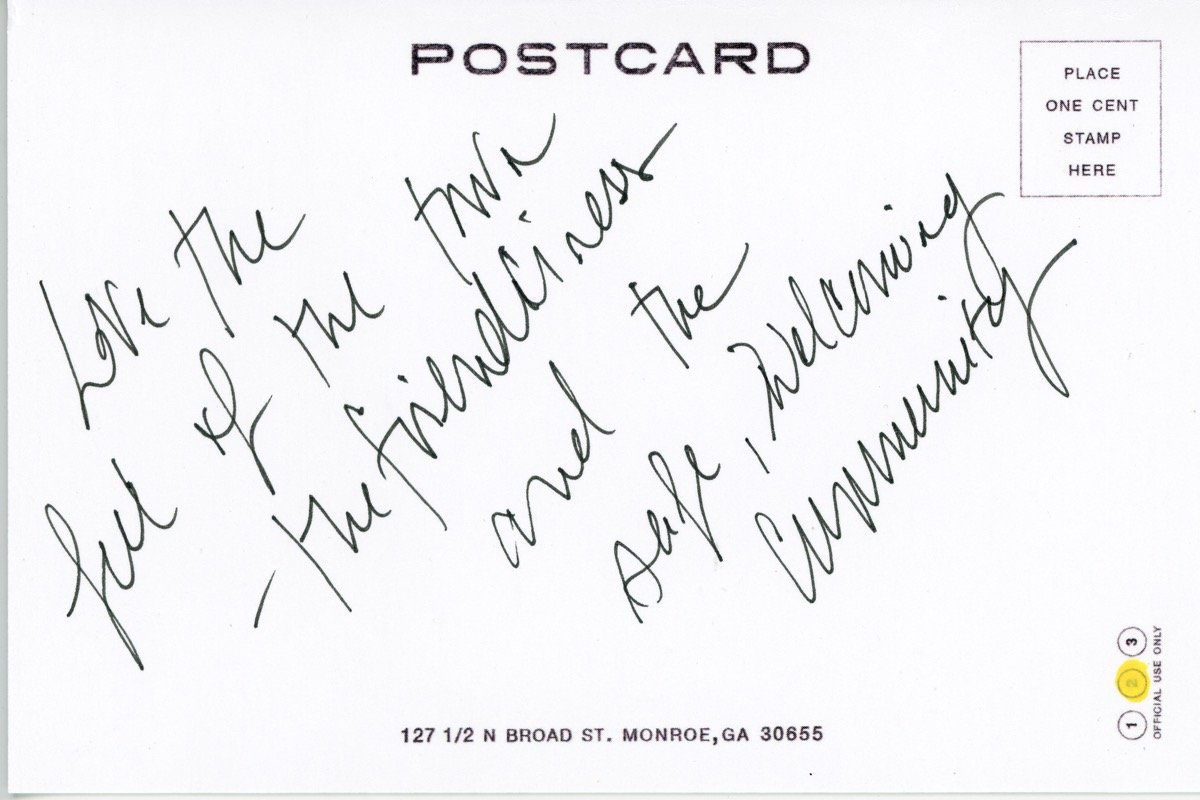 POSTCARD
PLACE
ONE CENT
STAMP
HERE
Love the
feel of the town
- the friendliness
and the
safe, welcoming
community
127 1/2 N BROAD ST. MONROE,GA 30655
1 2 3
OFFICIAL USE ONLY